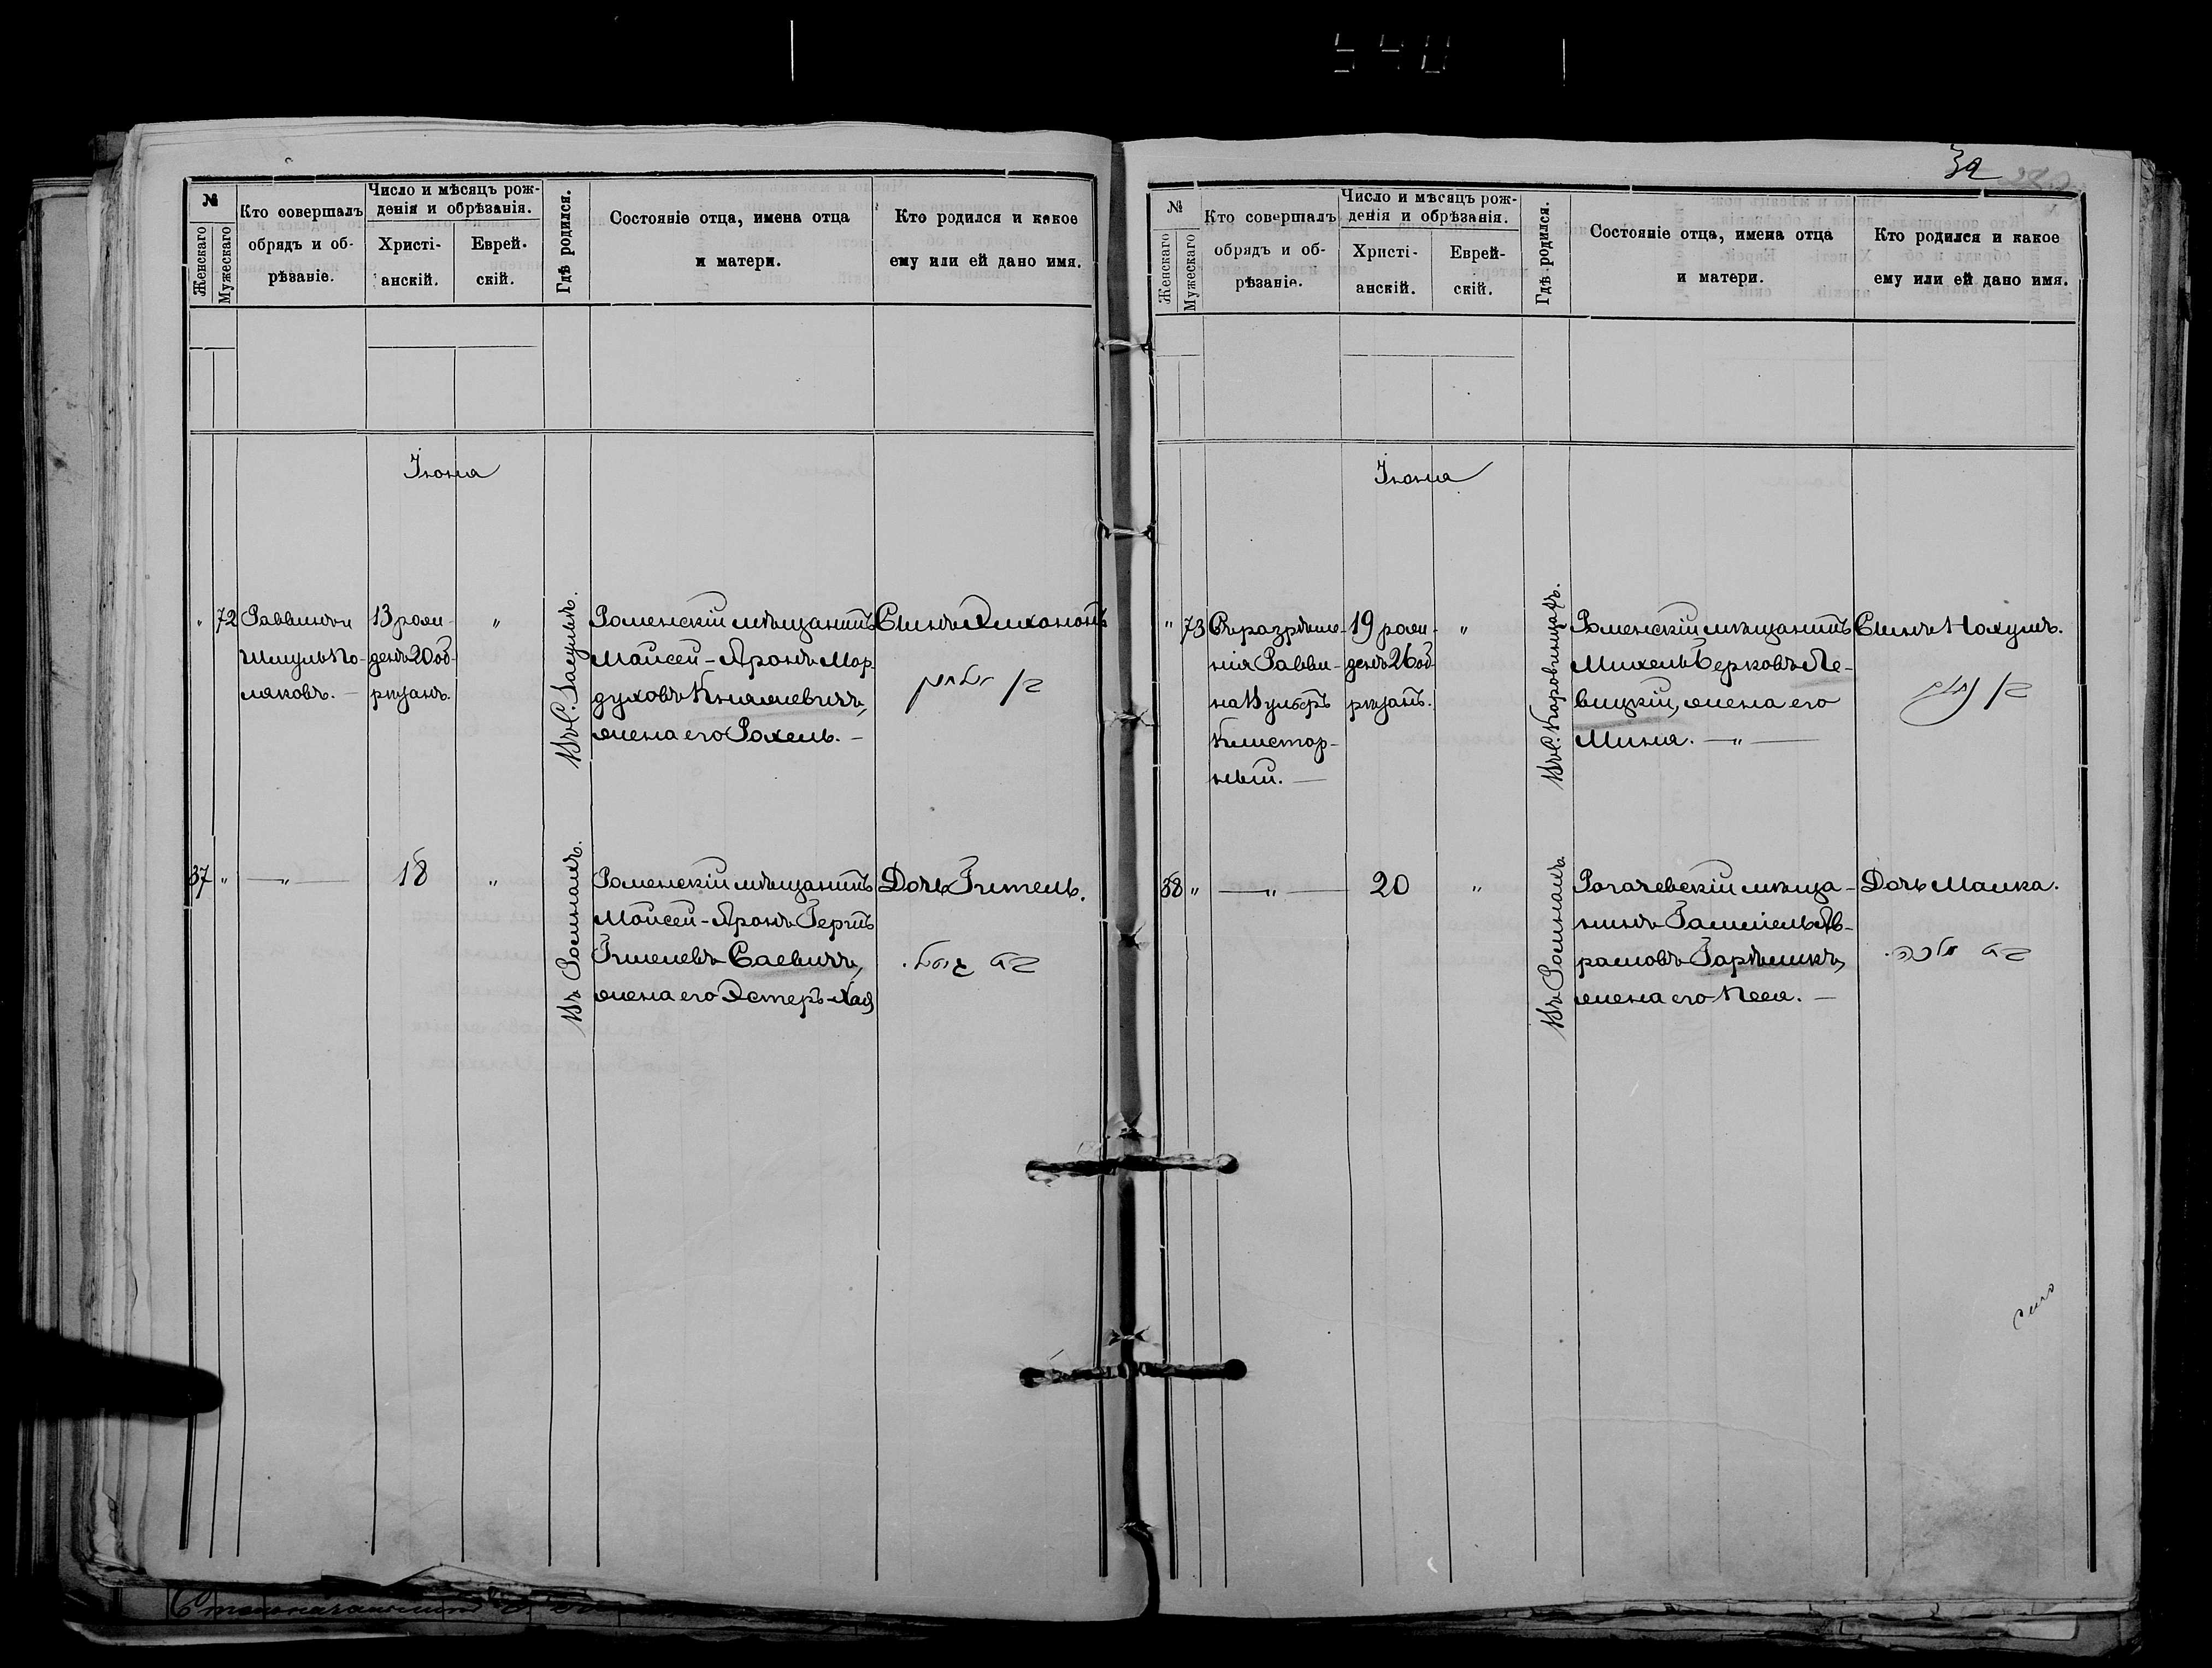 540
№
Женскаго
Мужескаго
Кто совершалъ
обрядъ и об-
рѣзаніе.
Число и мѣсяцъ рож-
денія и обрѣзанія.
Христі-
анскій.
Еврей-
скій.
Гдѣ родился.
Состояніе отца, имена отца
и матери.
Кто родился и какое
ему или ей дано имя.
Іюня
" 72
Раввинъ и
Шмуль По-
ляковъ. —
13 рож-
денъ 20 об-
рѣзанъ.
"
Въ С.
Роменскій мѣщанинъ
Мойсей-Аронъ Мор-
духовъ Княжевичъ,
жена его Рохель. —
Сынъ Элиханонъ
בן
37 "
— " —
18
"
Въ Ромнахъ.
Роменскій мѣщанинъ
Мойсей-Аронъ Герцъ
Саевичъ,
жена его Эстеръ-Хая
Дочь Гитель.
בת גיטל.
32
№
Женскаго
Мужескаго
Кто совершалъ
обрядъ и об-
рѣзаніе.
Число и мѣсяцъ рож-
денія и обрѣзанія.
Христі-
анскій.
Еврей-
скій.
Гдѣ родился.
Состояніе отца, имена отца
и матери.
Кто родился и какое
ему или ей дано имя.
Іюня
" 73
Съ разрѣше-
нія Равви-
на Вульфъ
Клистор-
ный. —
19 рож-
денъ 26 об-
рѣзанъ.
"
Въ С. Коровинцахъ.
Роменскій мѣщанинъ
Михель Берковъ Ле-
вицкій, жена его
Миня. — " —
Сынъ Нохумъ.
בן נחום
38 "
— " —
20
"
Въ Ромнахъ.
Рогачевскій мѣща-
нинъ Гамшель Ав-
рамовъ
жена его Песя. —
Дочь Малка.
בת מלכה.